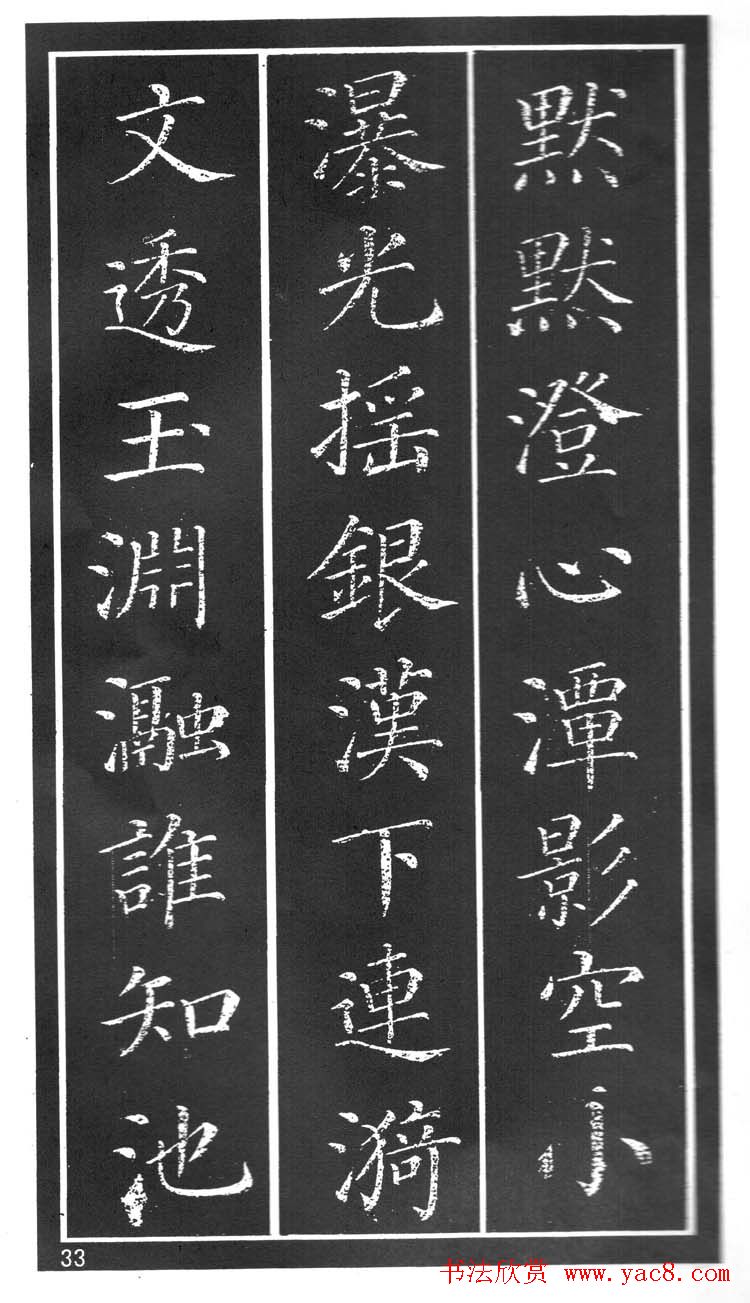 默默澄心潭影空小
瀑光摇銀漢下連漪
文透玉淵瀜誰知池
33
书法欣赏 www.yac8.com